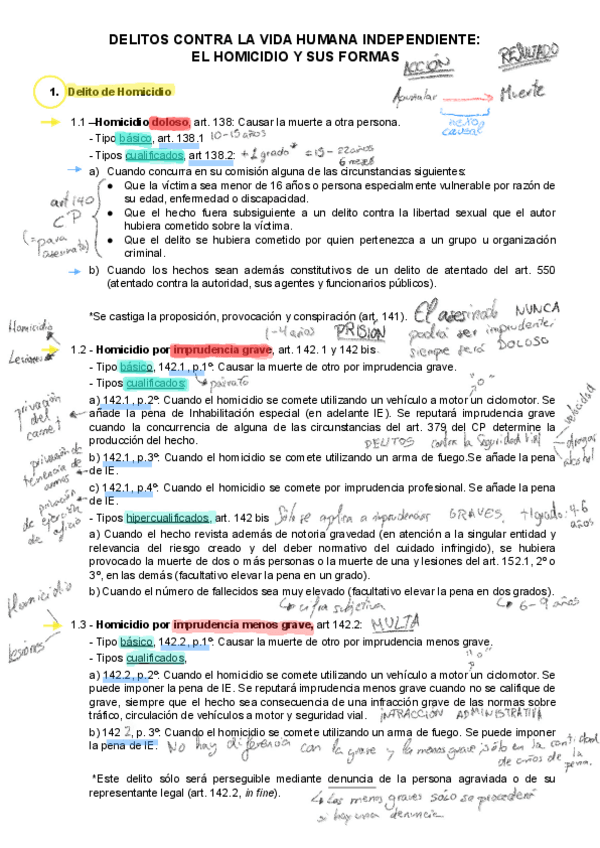 DELITOS CONTRA LA VIDA HUMANA INDEPENDIENTE:
EL HOMICIDIO Y SUS FORMAS
ACCIÓN
RESULTADO
Muerte
nexo
causal
1. Delito de Homicidio
1.1 –Homicidio doloso, art. 138: Causar la muerte a otra persona.
- Tipo básico, art. 138.1 10-15 años
- Tipos cualificados, art 138.2: +1 grado* = 15 - 22 años
6 meses
a) Cuando concurra en su comisión alguna de las circunstancias siguientes:
● Que la víctima sea menor de 16 años o persona especialmente vulnerable por razón de
su edad, enfermedad o discapacidad.
● Que el hecho fuera subsiguiente a un delito contra la libertad sexual que el autor
hubiera cometido sobre la víctima.
● Que el delito se hubiera cometido por quien pertenezca a un grupo u organización
criminal.
art 140
CP
(=para
asesinato)
b) Cuando los hechos sean además constitutivos de un delito de atentado del art. 550
(atentado contra la autoridad, sus agentes y funcionarios públicos).
*Se castiga la proposición, provocación y conspiración (art. 141). El asesinato NUNCA
podrá ser imprudente;
siempre será DOLOSO
1-4 años PRISIÓN
Homicidio
Lesiones
1.2 - Homicidio por imprudencia grave, art. 142. 1 y 142 bis
- Tipo básico, 142.1, p.1º: Causar la muerte de otro por imprudencia grave.
- Tipos cualificados:
"o"
a) 142.1, p.2º: Cuando el homicidio se comete utilizando un vehículo a motor un ciclomotor. Se
añade la pena de Inhabilitación especial (en adelante IE). Se reputará imprudencia grave
cuando la concurrencia de alguna de las circunstancias del art. 379 del CP determine la
producción del hecho. DELITOS contra la Seguridad Vial
velocidad
drogas
alcohol
privación
del
carnet
b) 142.1, p.3º: Cuando el homicidio se comete utilizando un arma de fuego.Se añade la pena
de IE.
privación de
tenencia de
armas
c) 142.1, p.4º: Cuando el homicidio se comete por imprudencia profesional. Se añade la pena
de IE.
privación
de ejercicio
de oficio
- Tipos hipercualificados, art. 142 bis Sólo se aplica a imprudencias GRAVES. +1grado: 4-6
años
a) Cuando el hecho revista además de notoria gravedad (en atención a la singular entidad y
relevancia del riesgo creado y del deber normativo del cuidado infringido), se hubiera
provocado la muerte de dos o más personas o la muerte de una y lesiones del art. 152.1, 2º o
3º, en las demás (facultativo elevar la pena en un grado).
b) Cuando el número de fallecidos sea muy elevado (facultativo elevar la pena en dos grados).
cifra subjetiva
6 - 9 años
Homicidio
lesiones
1.3 - Homicidio por imprudencia menos grave, art 142.2: MULTA
- Tipo básico, 142.2, p.1º: Causar la muerte de otro por imprudencia menos grave.
- Tipos cualificados,
"o"
a) 142.2, p.2º: Cuando el homicidio se comete utilizando un vehículo a motor un ciclomotor. Se
puede imponer la pena de IE. Se reputará imprudencia menos grave cuando no se califique de
grave, siempre que el hecho sea consecuencia de una infracción grave de las normas sobre
tráfico, circulación de vehículos a motor y seguridad vial. INFRACCIÓN ADMINISTRATIVA
b) 142 2, p. 3º: Cuando el homicidio se comete utilizando un arma de fuego. Se puede imponer
la pena de IE. No hay diferencia con la grave y la menos grave, sólo en la cantidad
de años de la
pena.
*Este delito sólo será perseguible mediante denuncia de la persona agraviada o de su
representante legal (art. 142.2, in fine).
Las menos graves sólo se procederá
si hay una denuncia